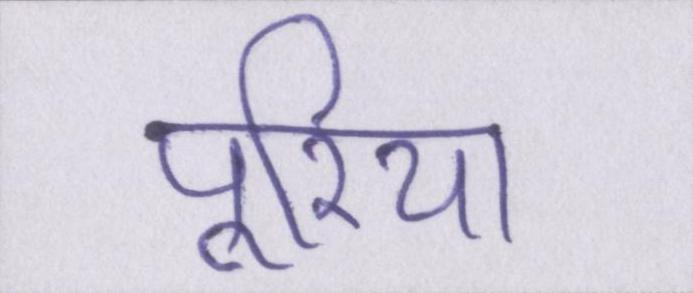 पूरिया